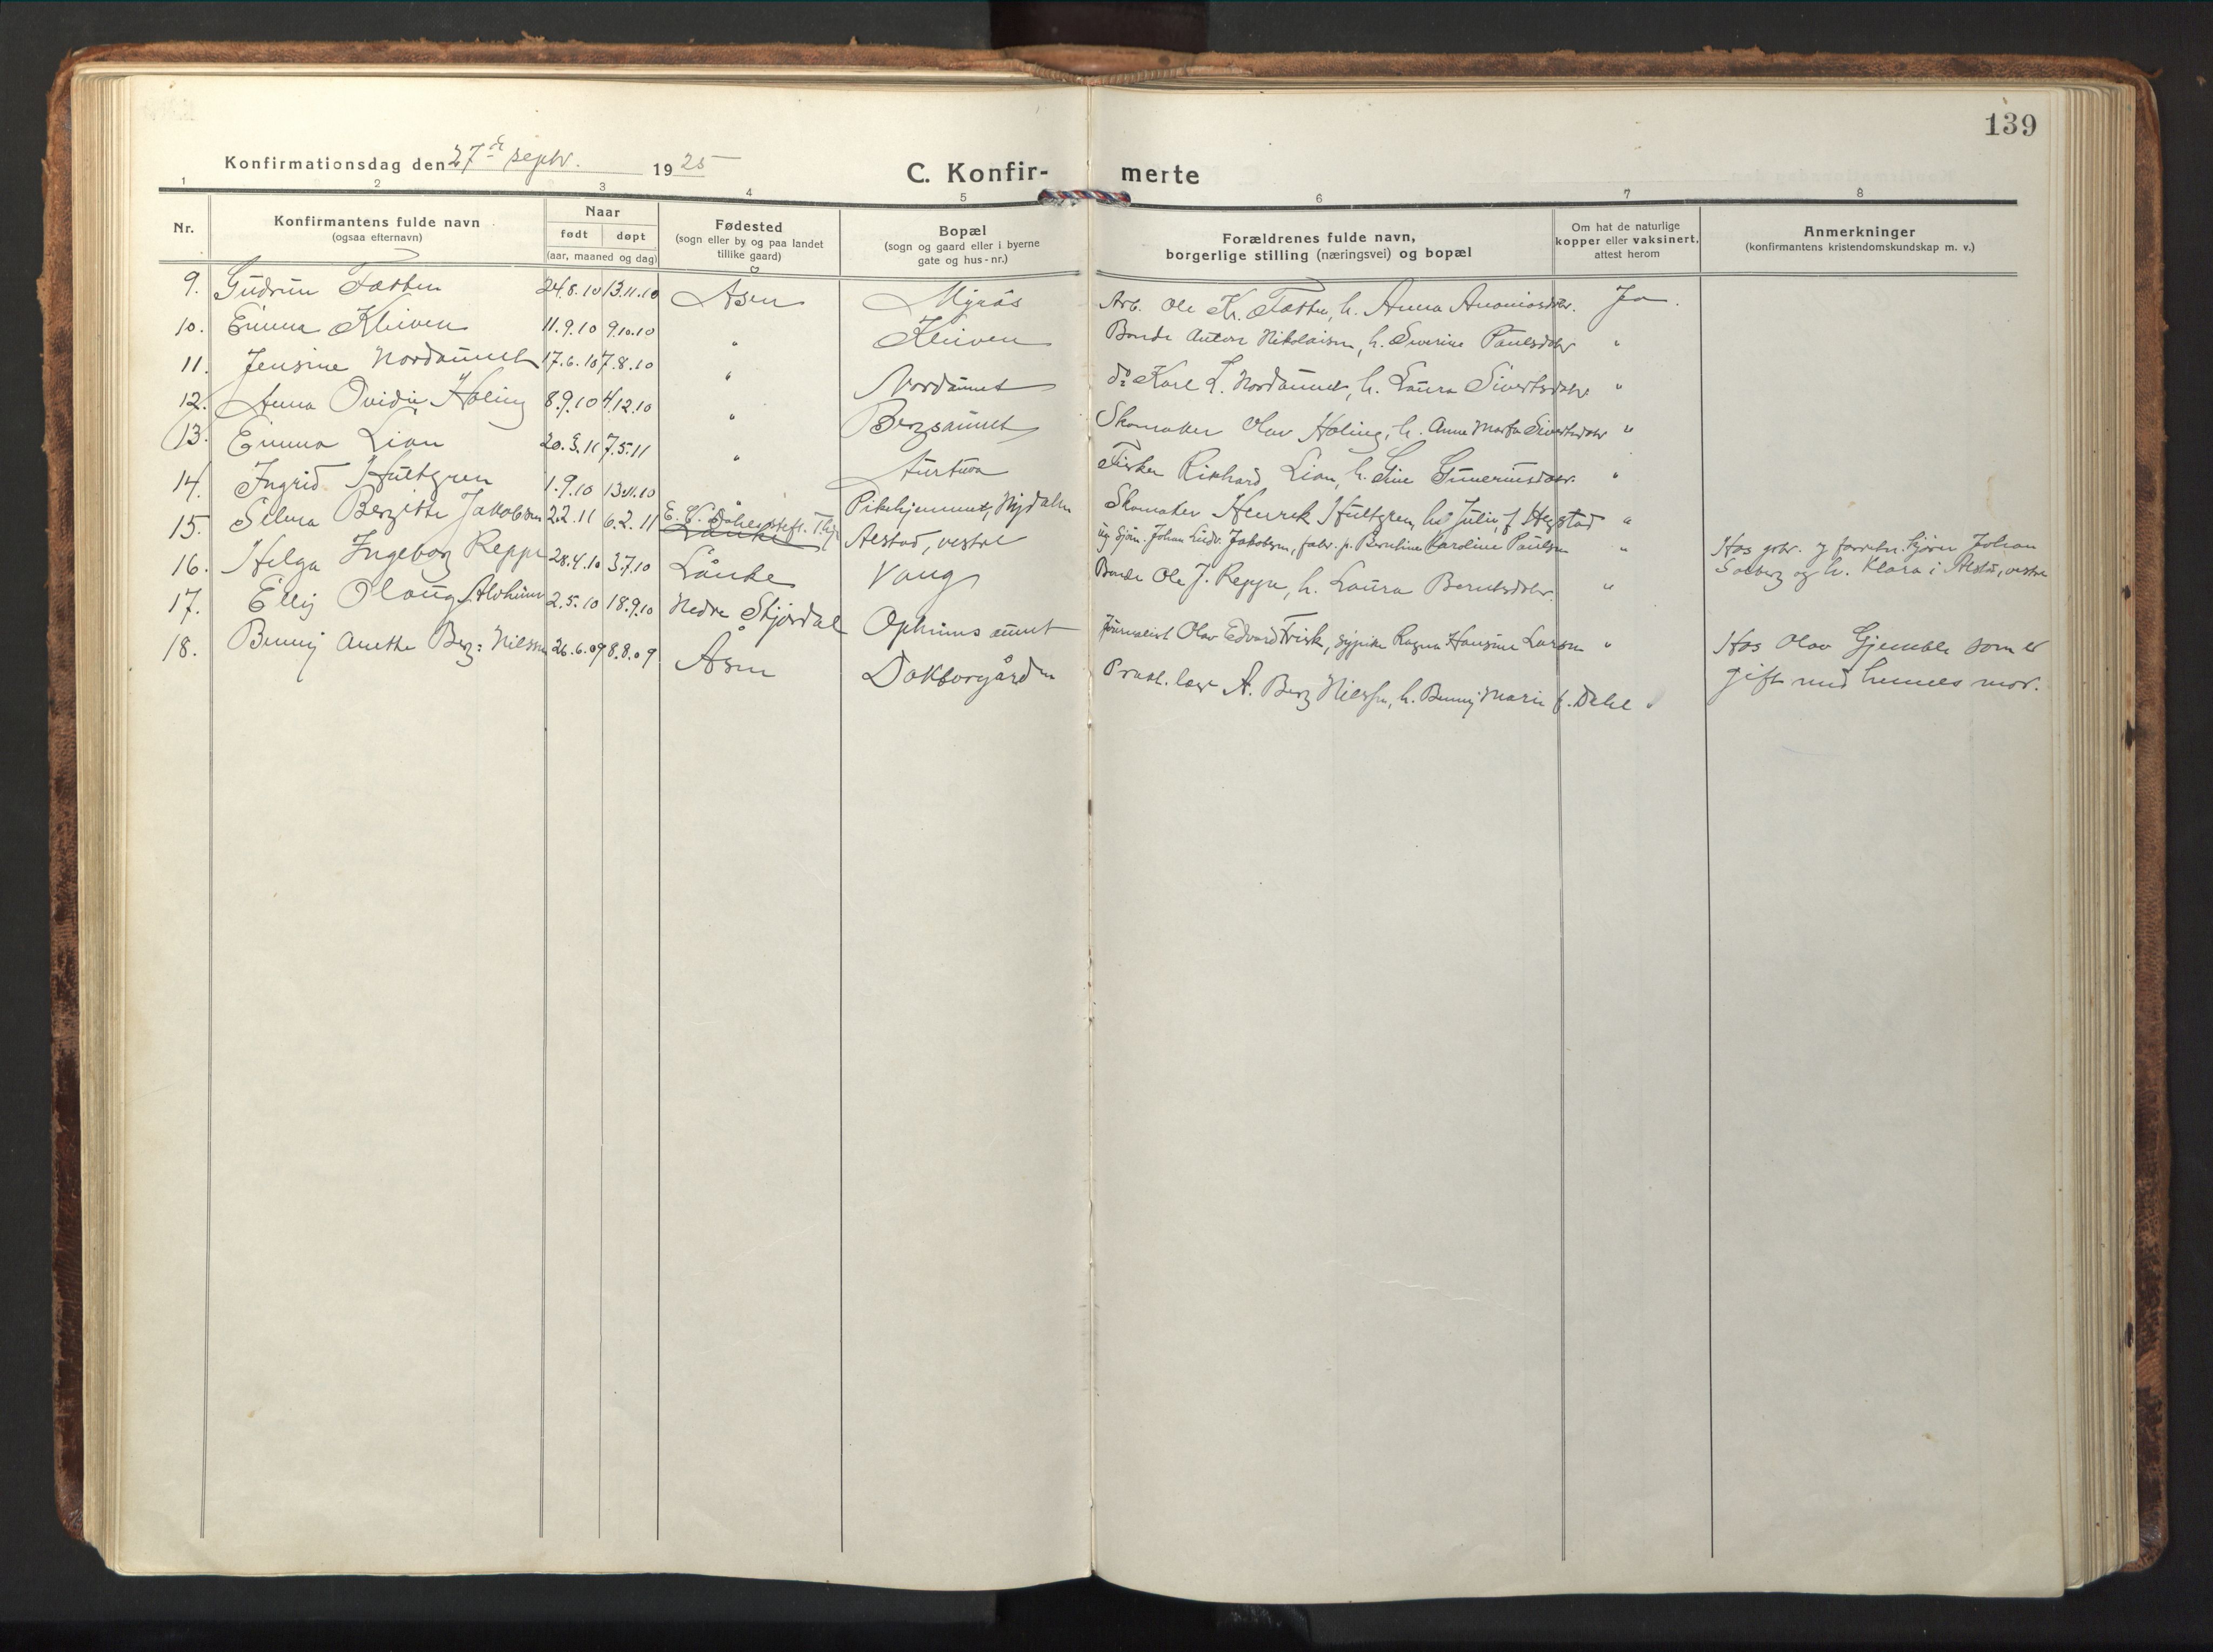 139
Konfirmationsdag den 27de septr. 1925
C. Konfir- merte
1 2 3 4 5 6 7 8
Nr. Konfirmantens fulde navn (ogsaa efternavn) Naar født døpt (aar, maaned og dag) Fødested (sogn eller by og paa landet tillike gaard) Bopæl (sogn og gaard eller i byerne gate og hus-nr.) Forældrenes fulde navn, borgerlige stilling (næringsvei) og bopæl Om hat de naturlige kopper eller vaksinert, attest herom Anmerkninger (konfirmantens kristendomskundskap m. v.)
9. Gudrun Fætten 24.8.10 13.11.10 Åsen Myrås Arb. Ole Kr. Fætten, h. Anna Ananiasdtr. Ja.
10. Emma Kleiven 11.9.10 9.10.10 " Kleiven Bonde Anton Nikolaisen, h. Severine Paulsdtr "
11. Jensine Nordaunet 17.6.10 7.8.10 " Nordaunet do Karl L. Nordaunet, h. Laura Sivertsdtr. "
12. Anna Ovidie Høling 8.9.10 4.12.10 " Bergsaunet Skomaker Olav Høling, h. Anne Marta Sivertsdtr "
13. Emma Lian 20.3.11 7.5.11 " Aurtun Fisker Rikhard Lian, h. Gine Gunneriusdtr. "
14. Ingrid Hultgren 1.9.10 13.11.10 Pikehjemmet, Nydalen Skomaker Henrik Hultgren, h. Julie f. Hegstad "
15. Selma Bergitte Jakobsen 2.2.11 6.2.11 E. C. Dahls stift. Thj. Lånke Alstad, vestre ug. sjøm. Johan Ludv. Jakobsen, fabr. p. Berntine Karoline Paulsen " Hos gbr. og forretn. bjørn Johan Solberg og h. Klara i Alstad, vestre
16. Helga Ingeborg Reppe 28.4.10 3.7.10 Lånke Vang Bonde Ole J. Reppe, h. Laura Berntsdtr. "
17. Elly Olaug Alvheim 2.5.10 18.9.10 Nedre Stjørdal Opheimsaunet Journalist Olav Edvard Frisk, sypike Ragna Hansine Larsen " Hos Olav Gjemble som er gift med hennes mor.
18. Benny Anette Berg=Nilssen 26.6.09 8.8.09 Åsen Doktorgården Prakt. læge A. Berg Nilssen, h. Benny Marie f. Dahl "